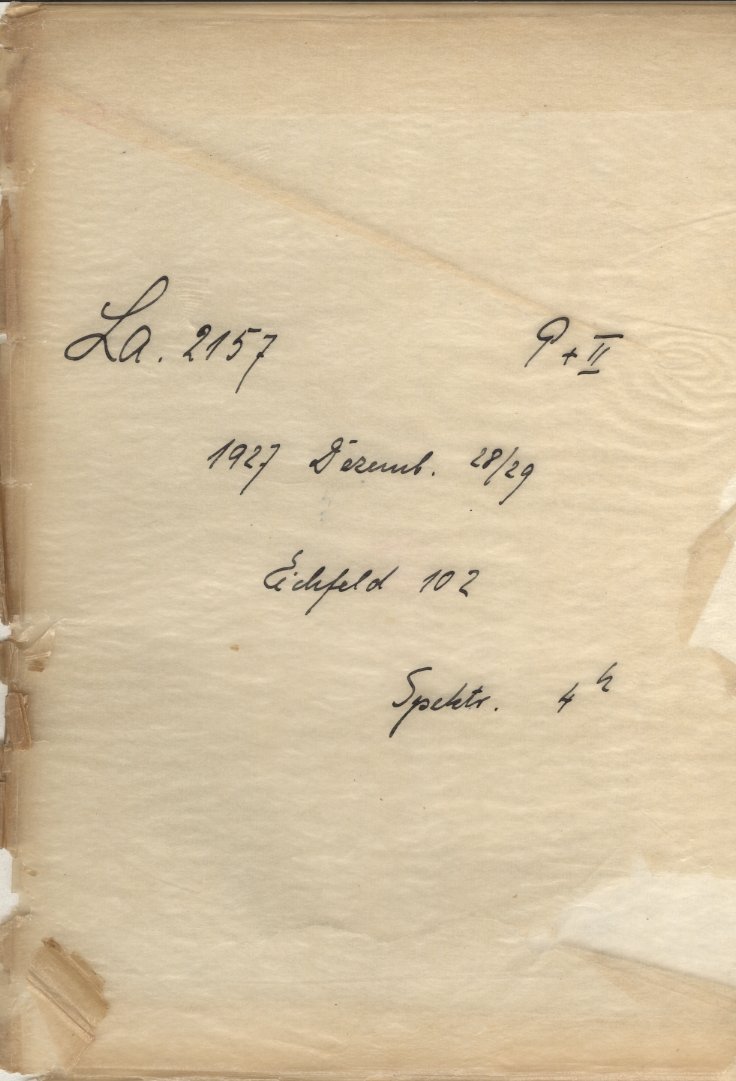 La. 2157 P + II
1927 Dezemb. 28/29
Eichfeld 102
Spektr. 4h